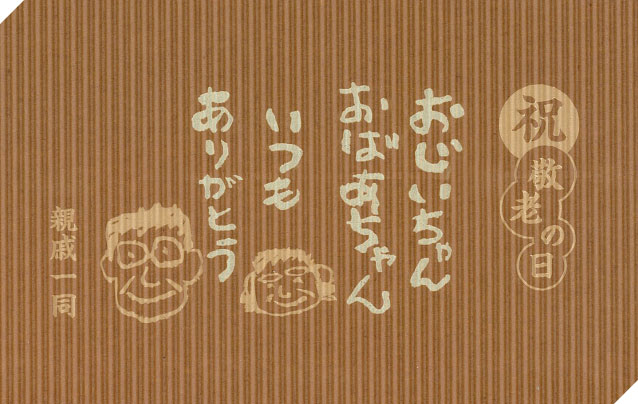 祝
敬老の日
おじいちゃん
おばあちゃん
いつも
ありがとう
親戚一同